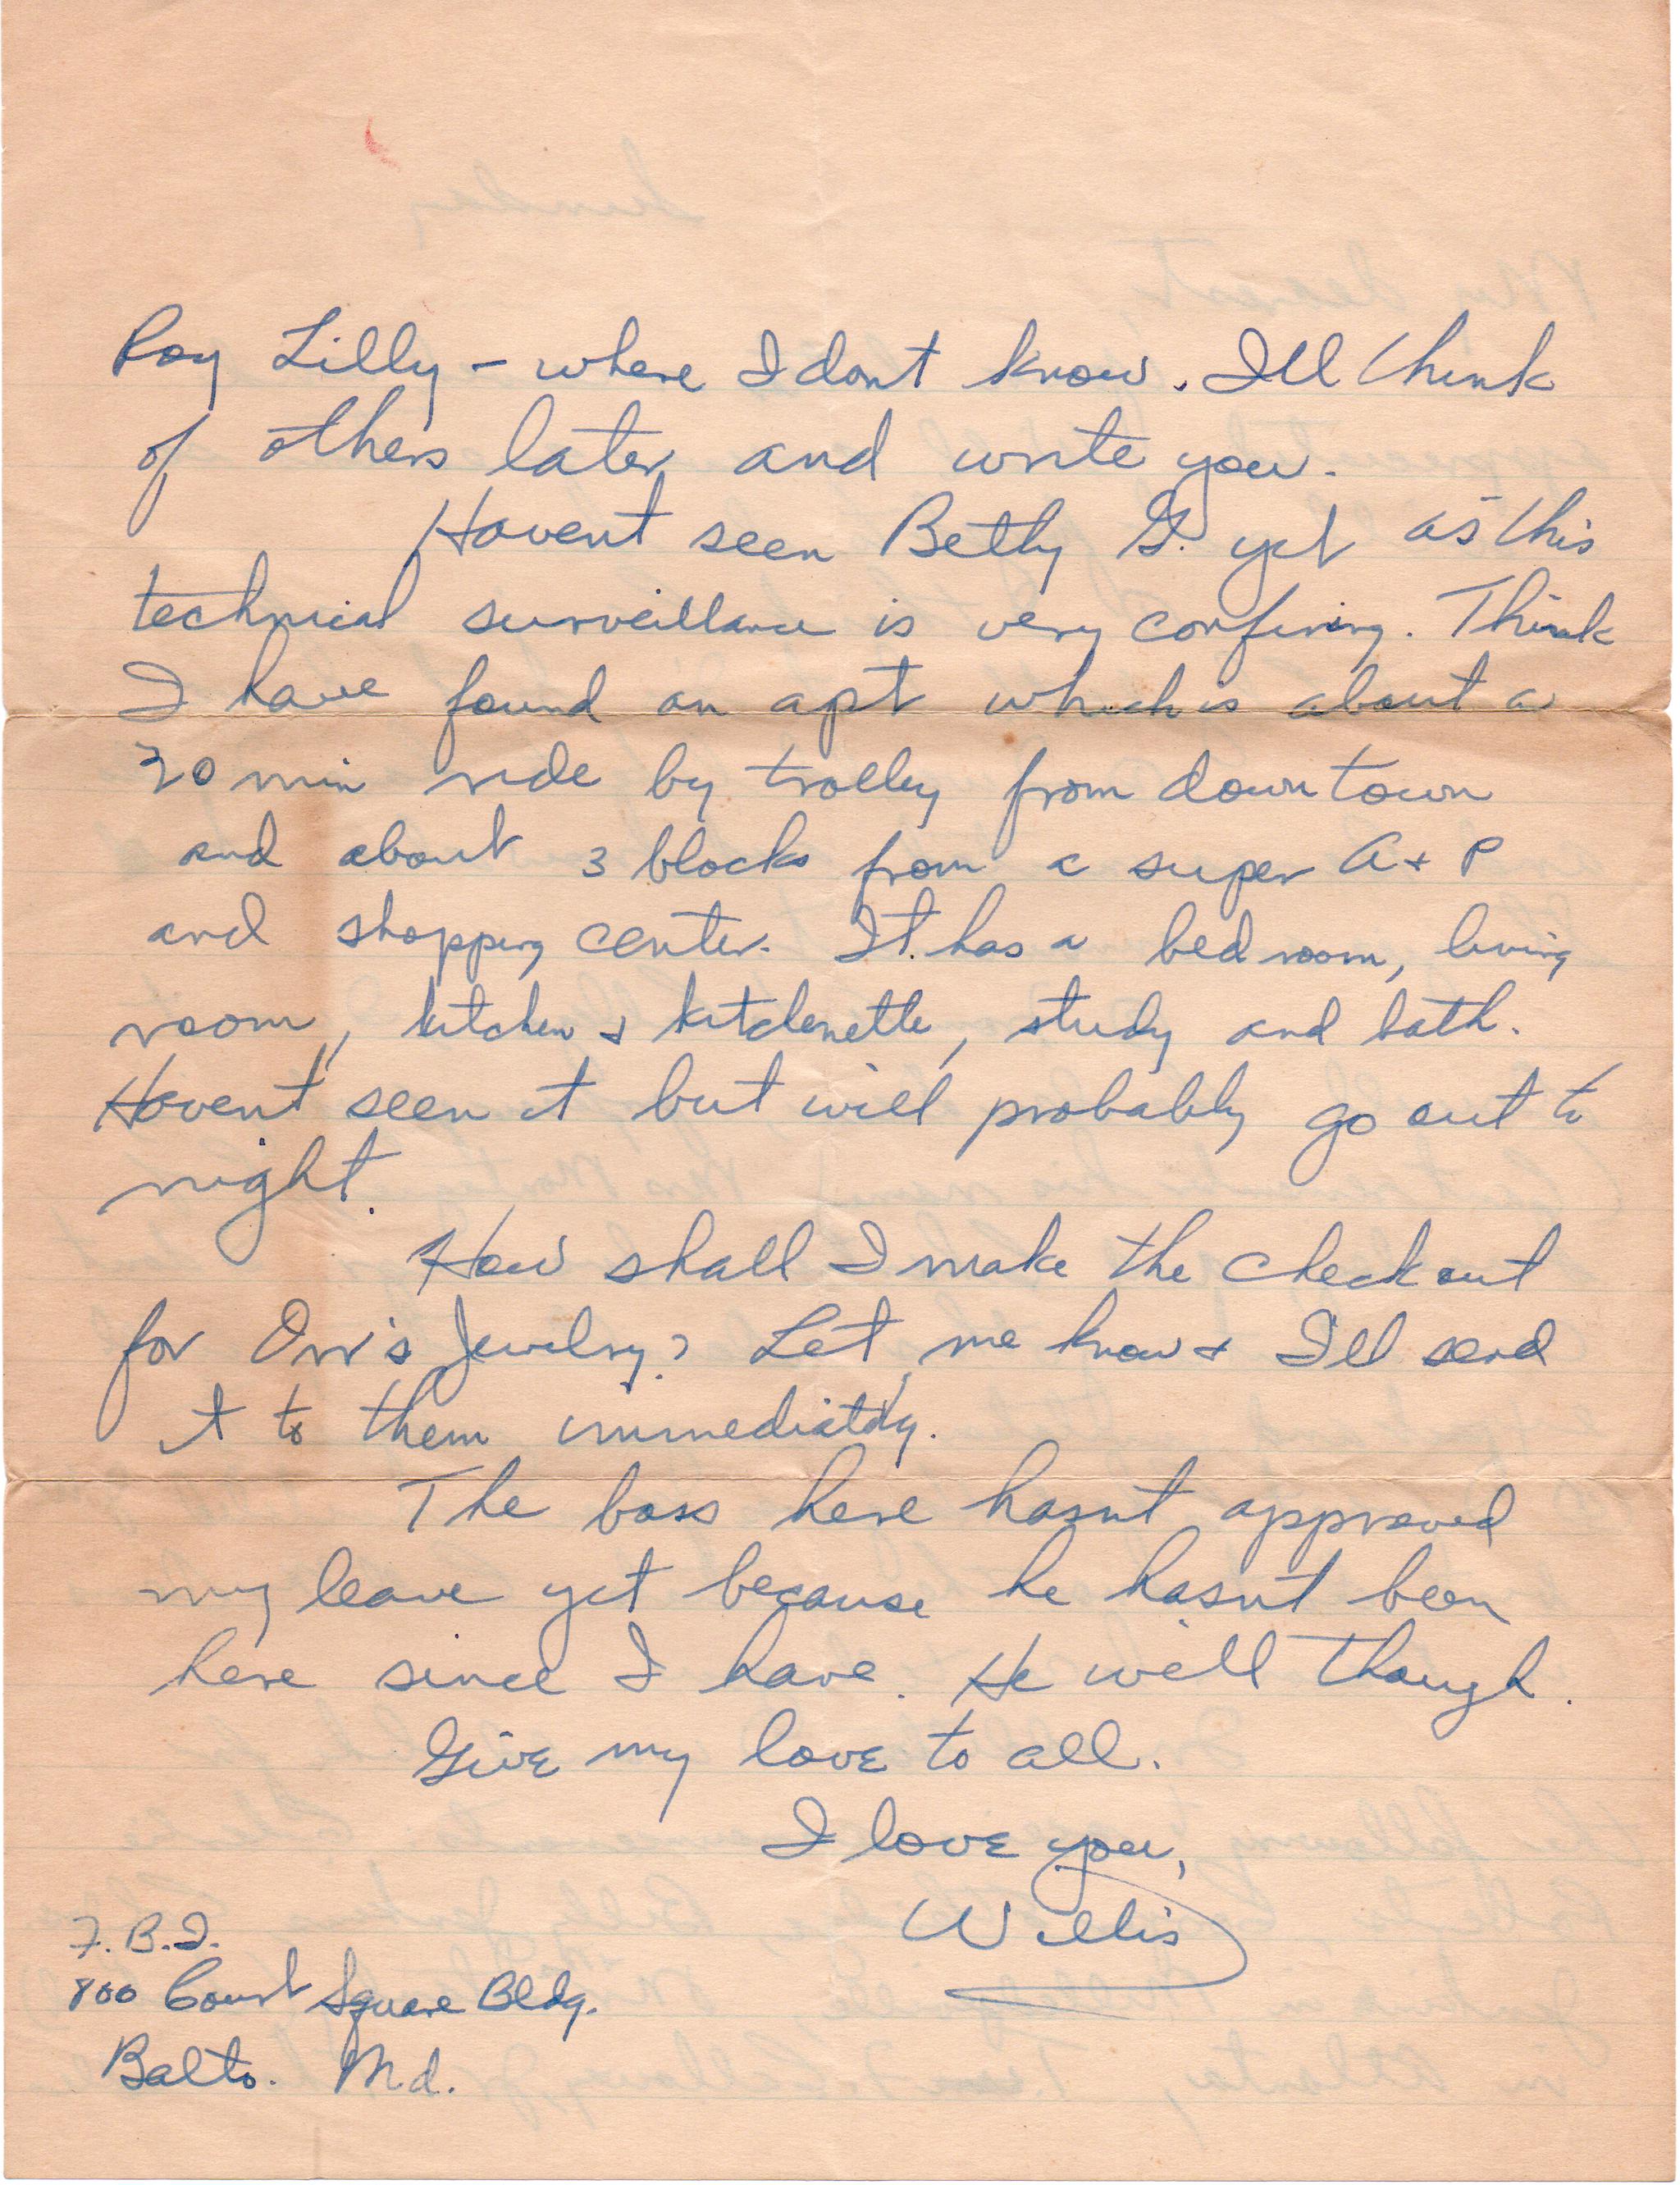 Roy Lilly – where I dont know. I'll think
of others later and write you.
Havent seen Betty G. yet as this
technical surveillance is very confining. Think
I have found an apt which is about a
20 min ride by trolley from downtown
and about 3 blocks from a super A + P
and shopping center. It has a bed room, living
room, kitchen + kitchenette, study and bath.
Havent seen it but will probably go out to
night.
How shall I make the check out
for Orr's Jewelry? Let me know + I'll send
it to them immediately.
The boss here hasnt approved
my leave yet because he hasnt been
here since I have. He will though.
Give my love to all.
I love you,
Willis
F.B.I.
800 Court Square Bldg.
Balto. Md.